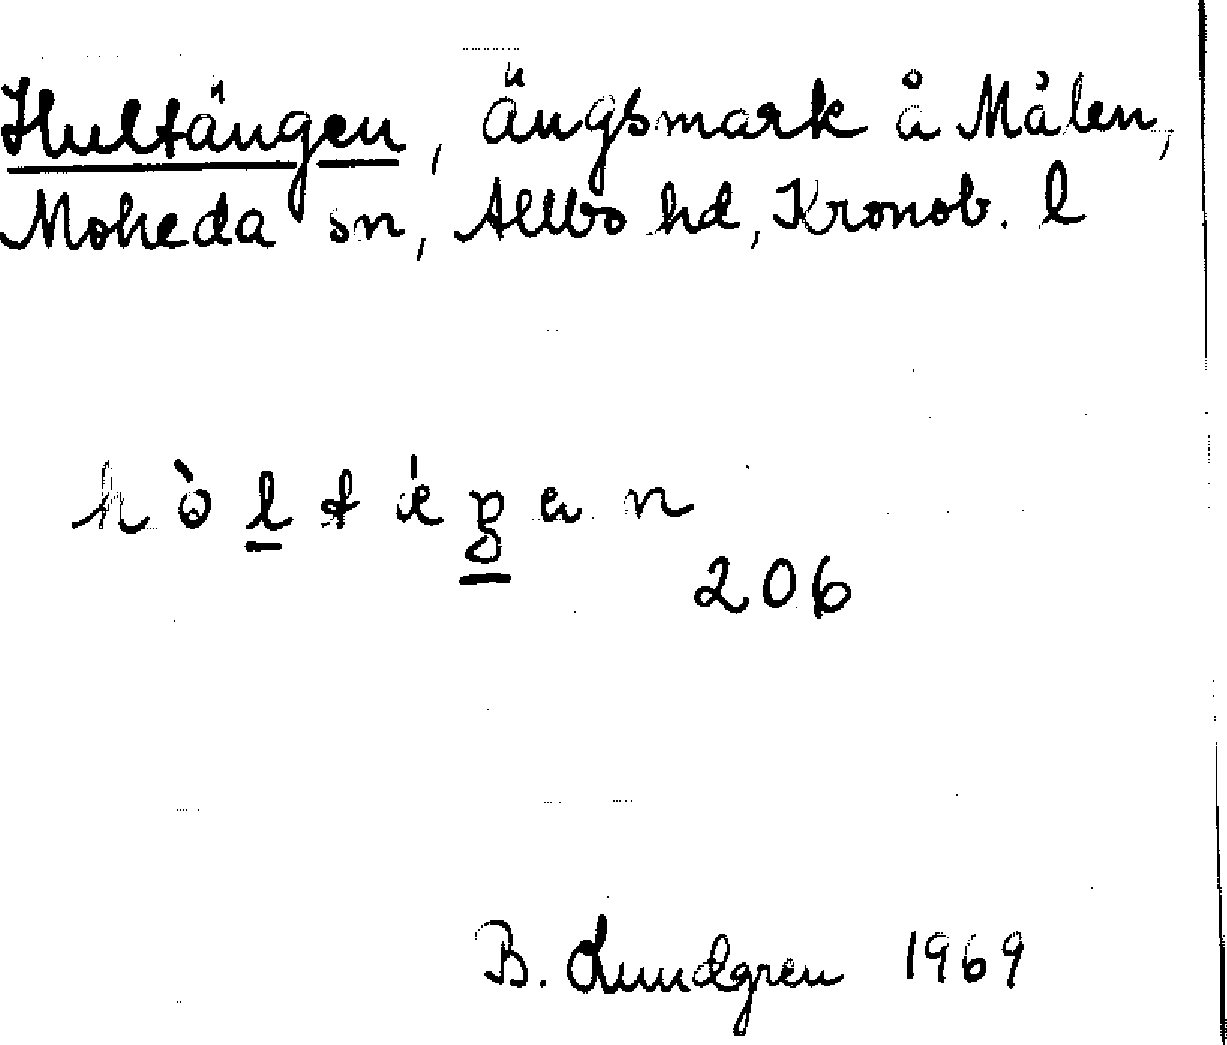 Hultängen, ängsmark å Målen,
Moheda sn, Allbo hd, Kronob. l
206
B. Lundgren 1969